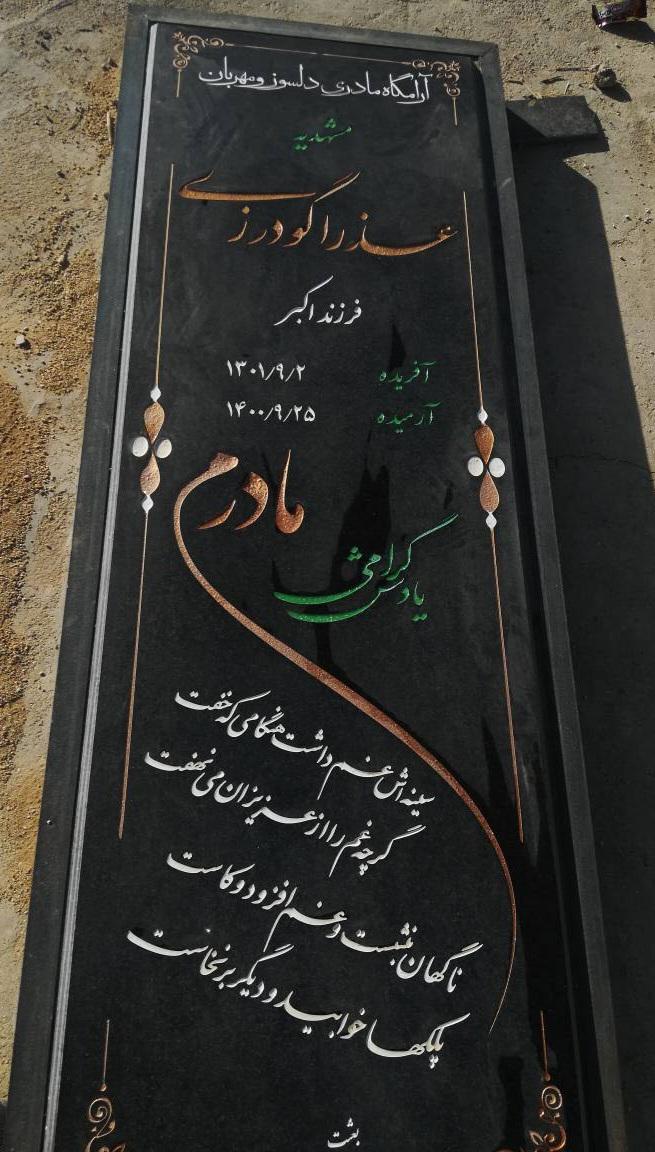 آرامگاه مادری دلسوز و مهربان
مشهدیه
عذرا گودرزی
فرزند اکبر
آفریده ۱۳۰۱/۹/۲
آرمیده ۱۴۰۰/۹/۲۵
مادرم
یادش گرامی
سینه اش غم داشت هنگامی که خفت
گرچه غم را از عزیزان می نهفت
ناگهان نشست و غم افزود و کاست
پلکها خوابید و دیگر برنخاست
بعثت